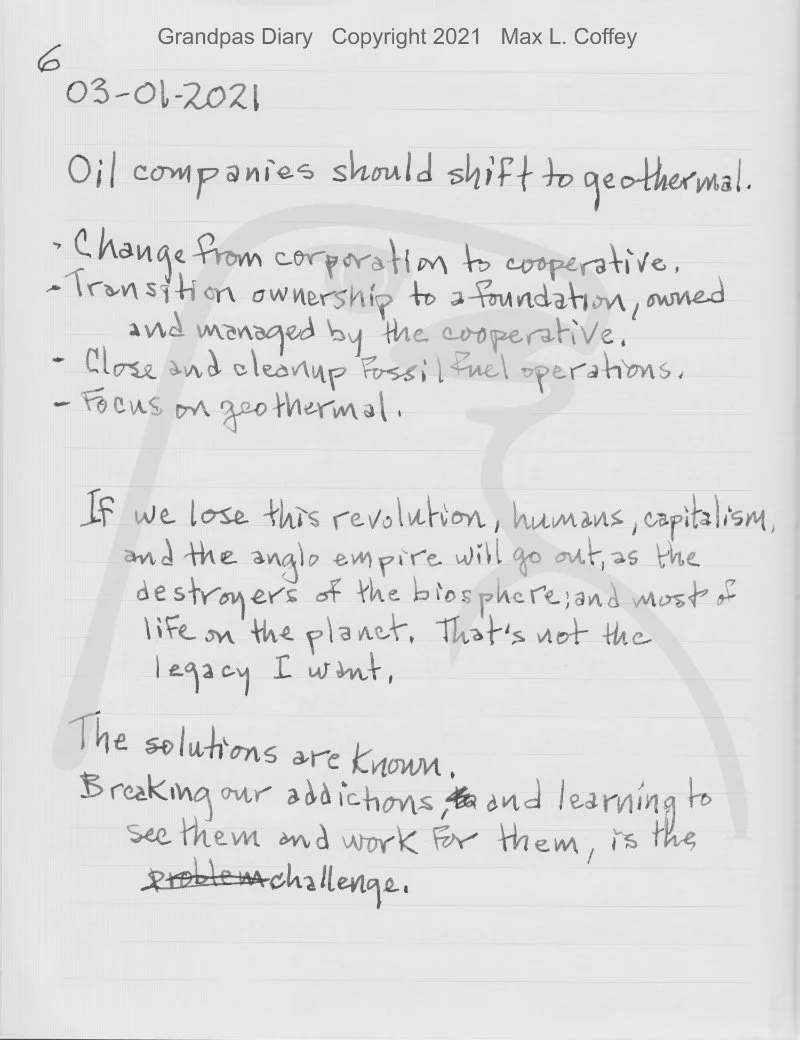 Grandpas Diary Copyright 2021 Max L. Coffey
6
03-01-2021
Oil companies should shift to geothermal.
- Change from corporation to cooperative.
- Transition ownership to a foundation, owned
and managed by the cooperative.
- Close and cleanup fossil fuel operations.
- Focus on geothermal.
If we lose this revolution, humans, capitalism,
and the anglo empire will go out, as the
destroyers of the biosphere; and most of
life on the planet. That's not the
legacy I want.
The solutions are known.
Breaking our addictions, to and learning to
see them and work for them, is the
problem challenge.